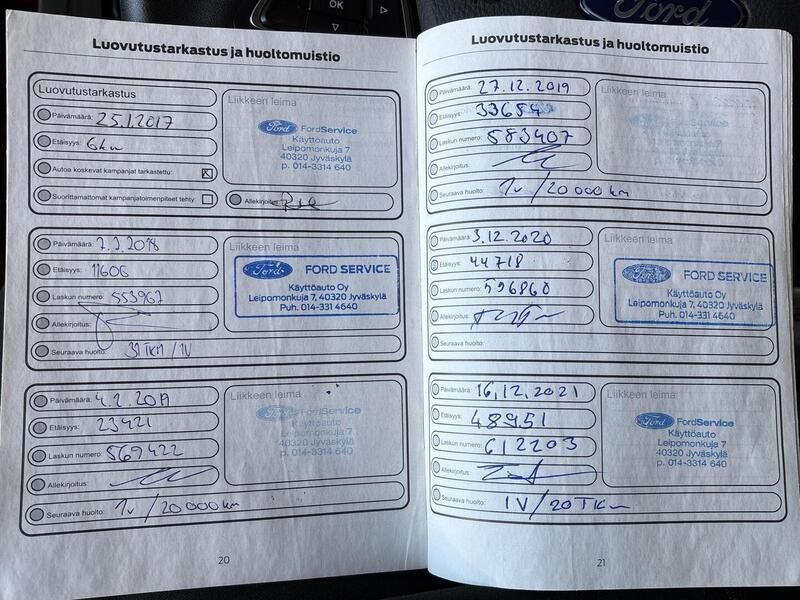 OK
Ford
Luovutustarkastus ja huoltomuistio
Luovutustarkastus
Päivämäärä: 25.1.2017
Etäisyys: 6km
Autoa koskevat kampanjat tarkastettu: X
Suorittamattomat kampanjatoimenpiteet tehty
Liikkeen leima
Ford FordService
Käyttöauto
Leipomonkuja 7
40320 Jyväskylä
p. 014-3314 640
Allekirjoitus:
Päivämäärä: 7.2.2018
Etäisyys: 11606
Laskun numero: 553967
Allekirjoitus:
Seuraava huolto: 31TKM / 1V
Liikkeen leima
Ford FORD SERVICE
Käyttöauto Oy
Leipomonkuja 7, 40320 Jyväskylä
Puh. 014-331 4640
Päivämäärä: 4.2.2019
Etäisyys: 23421
Laskun numero: 569422
Allekirjoitus:
Seuraava huolto: 1v / 20 000 km
Liikkeen leima
Ford FordService
Käyttöauto
Leipomonkuja 7
40320 Jyväskylä
p. 014-3314 640
20
Luovutustarkastus ja huoltomuistio
Päivämäärä: 27.12.2019
Etäisyys: 33684
Laskun numero: 583407
Allekirjoitus:
Seuraava huolto: 1v / 20 000 km
Liikkeen leima
Päivämäärä: 3.12.2020
Etäisyys: 44718
Laskun numero: 596860
Allekirjoitus:
Seuraava huolto:
Liikkeen leima
Ford FORD SERVICE
Käyttöauto Oy
Leipomonkuja 7, 40320 Jyväskylä
Puh. 014-331 4640
Päivämäärä: 16.12.2021
Etäisyys: 48951
Laskun numero: 612203
Allekirjoitus:
Seuraava huolto: 1V / 20 TKm
Liikkeen leima
Ford FordService
Käyttöauto
Leipomonkuja 7
40320 Jyväskylä
p. 014-3314 640
21